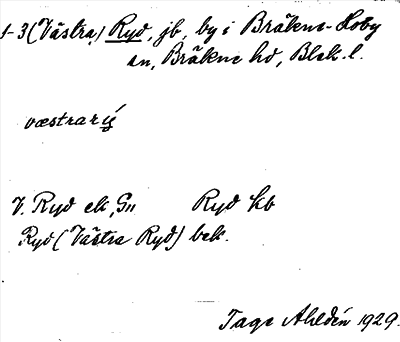 1-3 (Västra) Ryd, jb, by i Bräkne-Hoby
sn, Bräkne hd, Blek. l.
væstrarý
V. Ryd ek, Gn Ryd kb
Ryd (Västra Ryd) bek.
Tage Ahldén 1929.